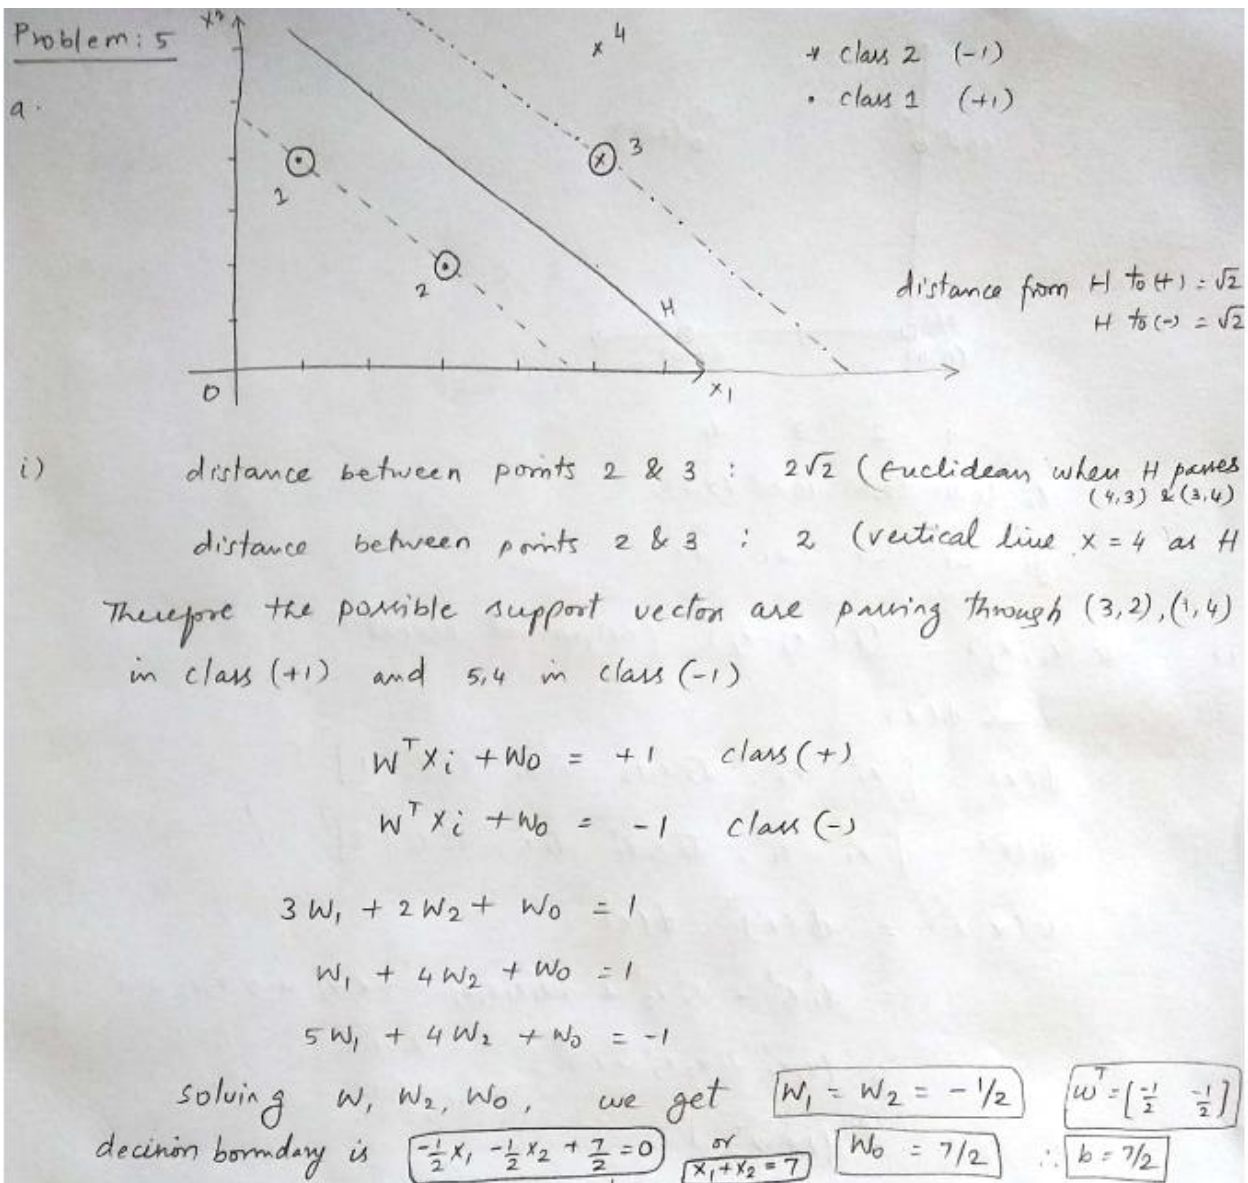 Problem: 5
x2
x 4
* class 2 (-1)
a.
• class 1 (+1)
3
1
2
H
distance from H to (+) = √2
H to (-) = √2
0
x1
i) distance between points 2 & 3 : 2√2 (Euclidean when H passes
(4,3) & (3,4)
distance between points 2 & 3 : 2 (vertical line x = 4 as H
Therefore the possible support vector are passing through (3,2), (1,4)
in class (+1) and 5,4 in class (-1)
W^T Xi + W0 = +1 class (+)
W^T Xi + W0 = -1 class (-)
3 W1 + 2 W2 + W0 = 1
W1 + 4 W2 + W0 = 1
5 W1 + 4 W2 + W0 = -1
solving W1 W2, W0, we get W1 = W2 = -1/2 W^T = [-1/2 -1/2]
decision boundary is -1/2 x1 - 1/2 x2 + 7/2 = 0 or x1 + x2 = 7 W0 = 7/2 ∴ b = 7/2